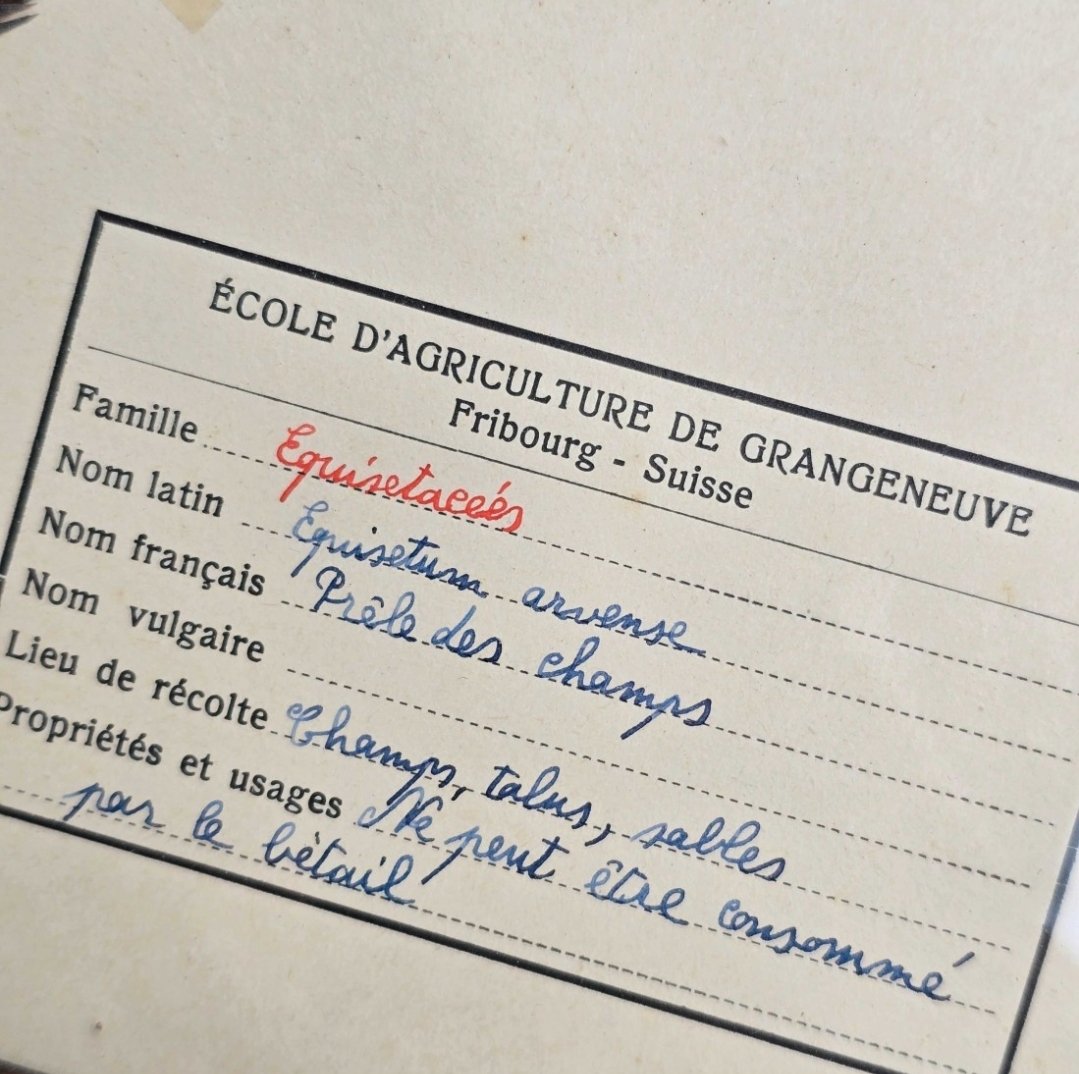 ÉCOLE D'AGRICULTURE DE GRANGENEUVE
Fribourg - Suisse
Famille Equisetaceés
Nom latin Equisetum arvense
Nom français Prêle des champs
Nom vulgaire
Lieu de récolte Champs, talus, sables
Propriétés et usages Ne peut être consommé
par le bètail